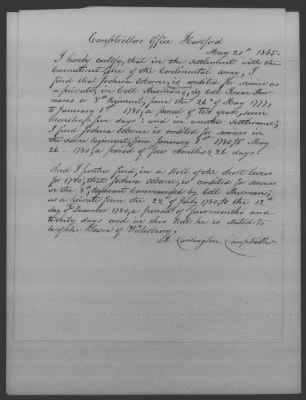 Comptrollers Office Hartford
May 20th 1845.
I hereby certify, that in the settlement with the
Connecticut Line of the Continental army, I
find that Joshua Osborne, is credited for service as
a private, in Coll Shermans, Coll Isaac Sher-
mans or 8th Regiment, from the 26th of May 1777
to January 1st 1780, a period of two years, seven
months & five days; and in another settlement,
I find Joshua Osborne is credited for services in
the same Regiment from January 1st 1780, to May
26 - 1780, a period of four months & 26 days.
And I further find, in a Roll of the short levies
for 1780, that Joshua Osborne, is credited for service
in the 8th Regiment Commanded by Coll Sherman,
as a private from the 22d of July 1780, to the 12th
day of December 1780, a period of four months and
twenty days and in this Roll he is stated to
be of the Town of Waterbury.
Comptroller